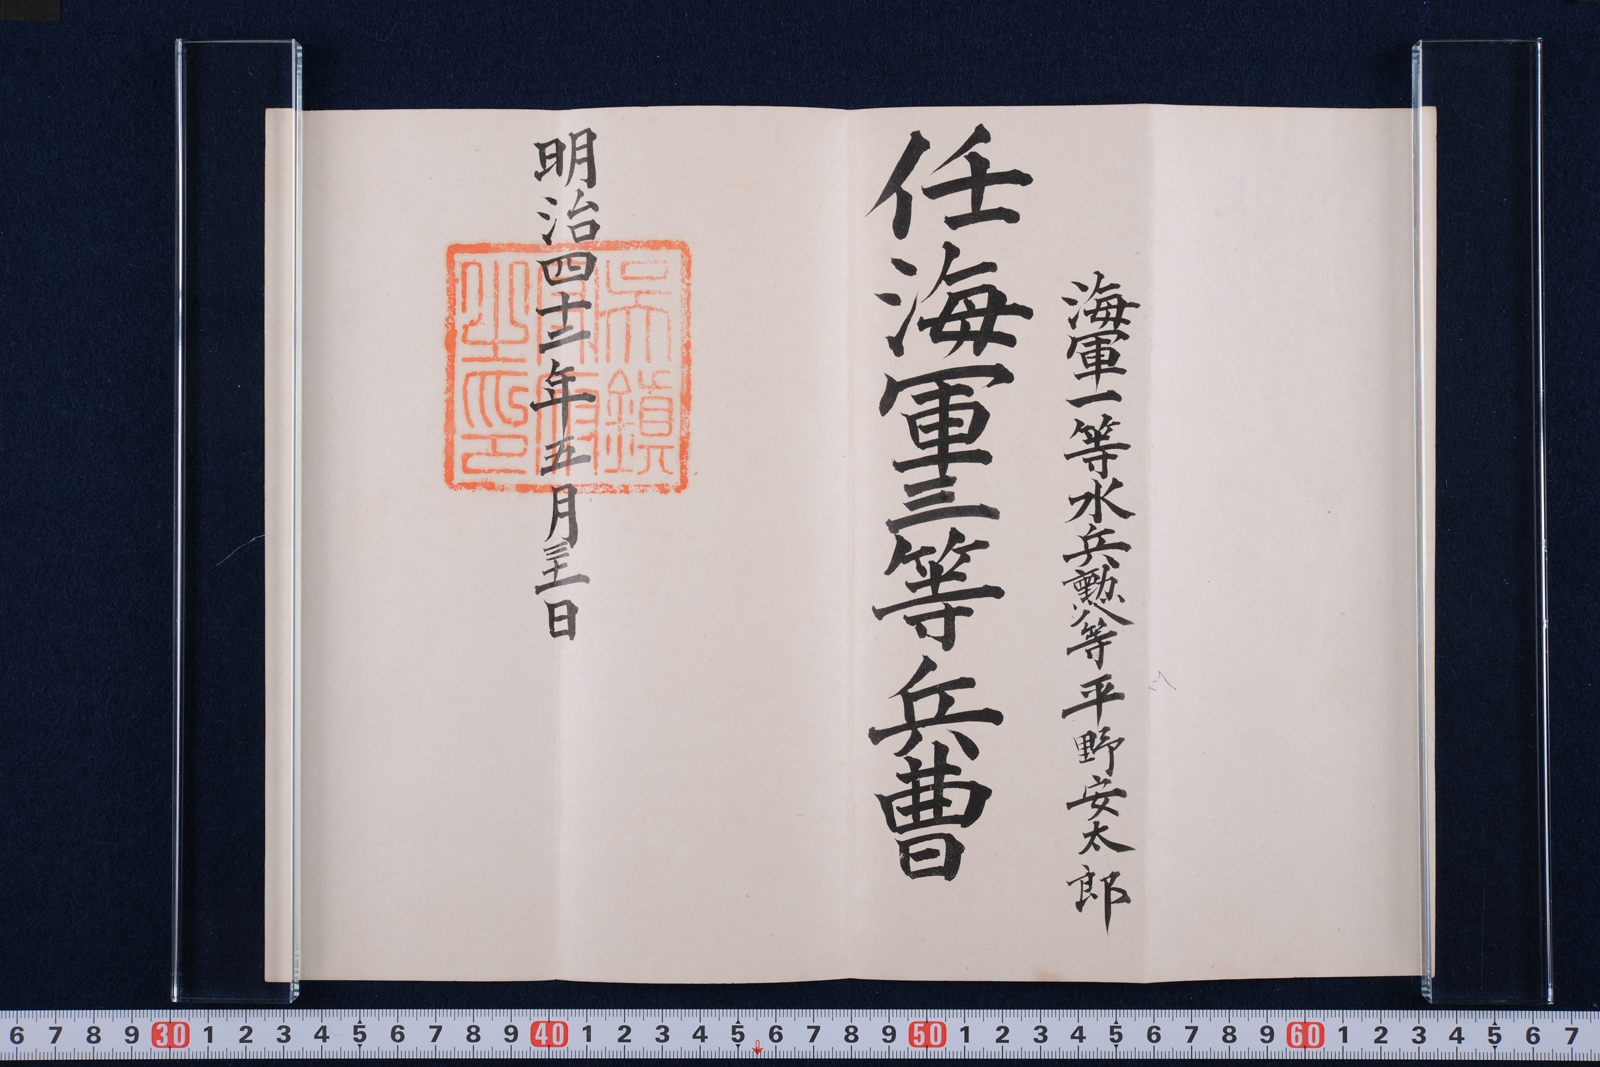 海軍一等水兵勲八等平野安太郎
任海軍三等兵曹
明治四十二年五月三十一日
呉鎮
守府
之印
6 7 8 9 30 1 2 3 4 5 6 7 8 9 40 1 2 3 4 5 6 7 8 9 50 1 2 3 4 5 6 7 8 9 60 1 2 3 4 5 6 7